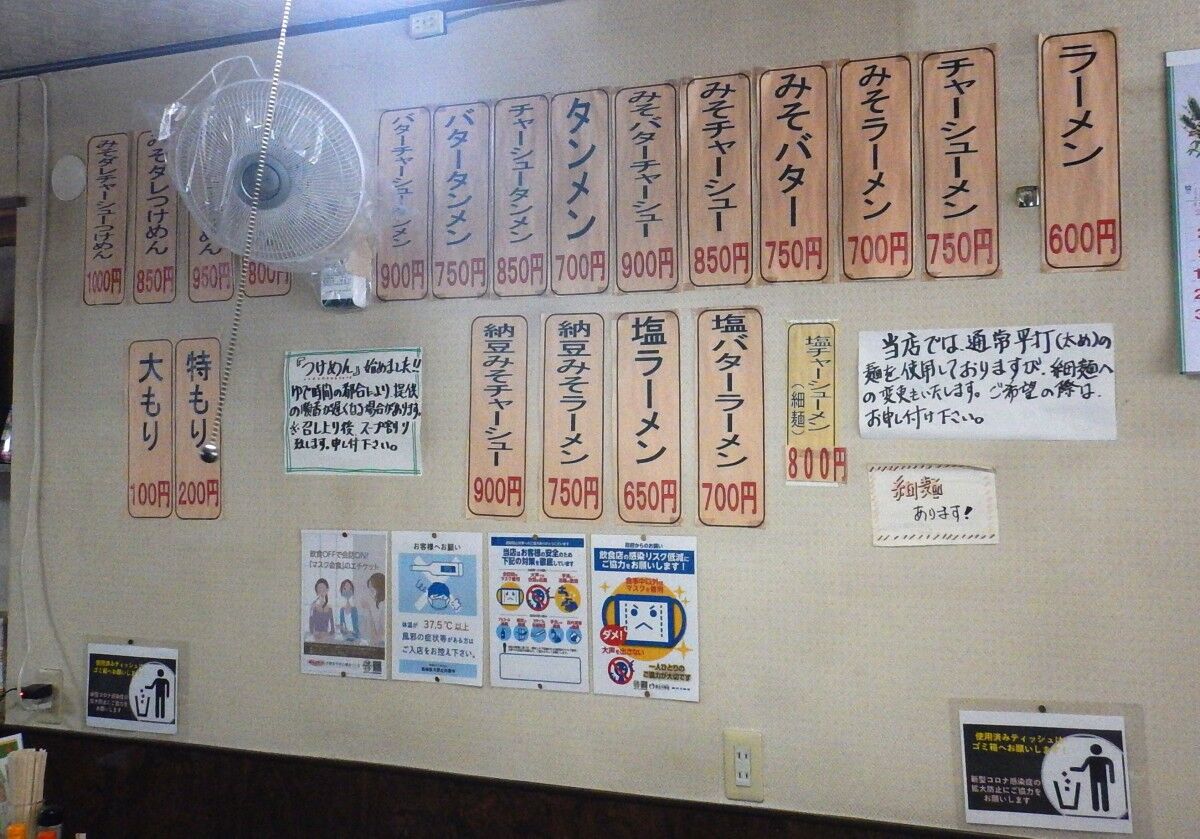 ラーメン
600円
チャーシューメン
750円
みそラーメン
700円
みそバター
750円
みそチャーシュー
850円
みそバターチャーシュー
900円
タンメン
700円
チャーシュータンメン
850円
バタータンメン
750円
バターチャーシュータンメン
900円
800円
めん
950円
みそダレつけめん
850円
みそダレチャーシューつけめん
1000円
当店では、通常平打(太め)の
麺を使用しておりますが、細麺へ
の変更もいたします。ご希望の際は、
お申し付け下さい。
細麺
あります!
塩チャーシューメン
(細麺)
800円
塩バターラーメン
700円
塩ラーメン
650円
納豆みそラーメン
750円
納豆みそチャーシュー
900円
『つけめん』始めました!!
ゆで時間の都合により、提供
の順番が遅くなる場合があります。
※召し上り後、スープ割り
致します。申し付下さい。
特もり
200円
大もり
100円
飲食OFFで会話ON!
「マスク会食」のエチケット
お客様へお願い
体温が 37.5℃以上
風邪の症状等がある方は
ご入店をお控え下さい。
当店はお客様の安全のため
下記の対策を徹底しています
政府からのお願い
飲食店の感染リスク低減に
ご協力をお願いします!
食事中以外は
マスクを着用
ダメ!
大声を出さない
一人ひとりの
ご協力が大切です
使用済みティッシュは
ゴミ箱へお願いします
新型コロナ感染症の
拡大防止にご協力を
お願いします
使用済みティッシュは
ゴミ箱へお願いします
新型コロナ感染症の
拡大防止にご協力を
お願いします